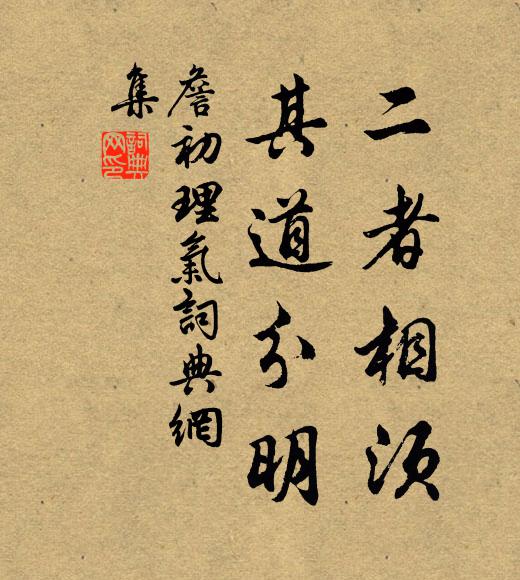 二者相须
其道分明
詹初理氣詞典網
集
詞典
网印